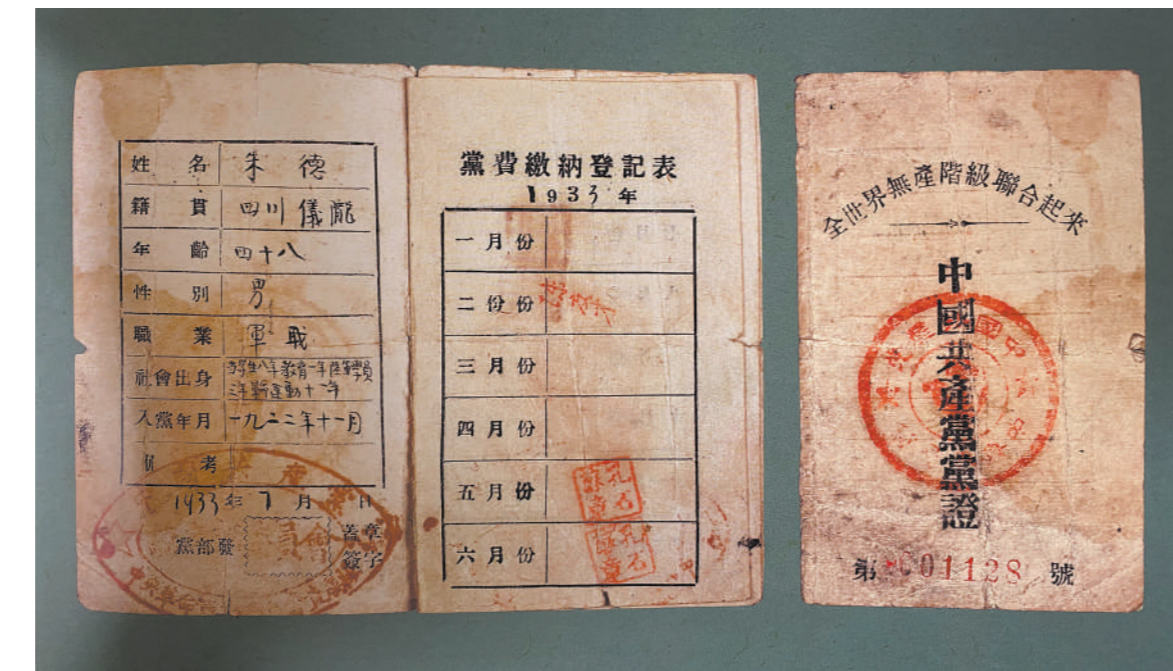 姓 名 朱 德
籍 貫 四川 儀隴
年 齡 四十八
性 別 男
職 業 軍 戰
社會出身
入黨年月 一九二二年十一月
考
1933 年 7 月 日
黨部發
蓋章
簽字
黨費繳納登記表
1933 年
一 月 份
二 份 份
三 月 份
四 月 份
五 月 份
六 月 份
全世界無產階級聯合起來
中國共產黨黨證
第 001128 號